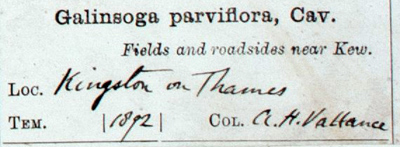 Galinsoga parviflora, Cav.
Fields and roadsides near Kew.
Loc. Kingston on Thames
Tem. |1892| Col. A. H. Vallance